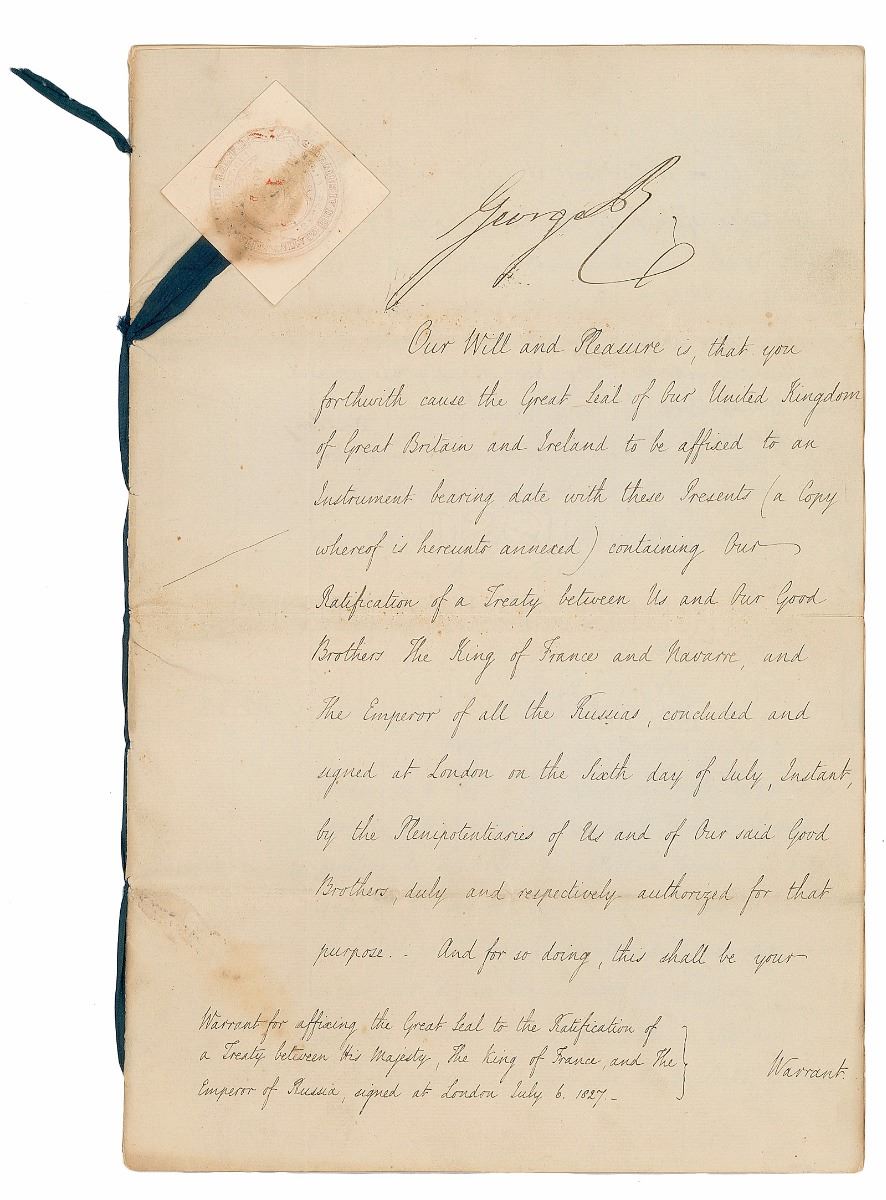 George R
Our Will and Pleasure is, that you
forthwith cause the Great Seal of Our United Kingdom
of Great Britain and Ireland to be affixed to an
Instrument bearing date with these Presents (a Copy
whereof is hereunto annexed) containing Our
Ratification of a Treaty between Us and Our Good
Brothers The King of France and Navarre, and
The Emperor of all the Russias, concluded and
signed at London on the Sixth day of July, Instant,
by the Plenipotentiaries of Us and of Our said Good
Brothers, duly and respectively authorized for that
purpose. - And for so doing, this shall be your
Warrant for affixing the Great Seal to the Ratification of
a Treaty between His Majesty, The King of France, and The
Emperor of Russia, signed at London July 6. 1827. -
Warrant.